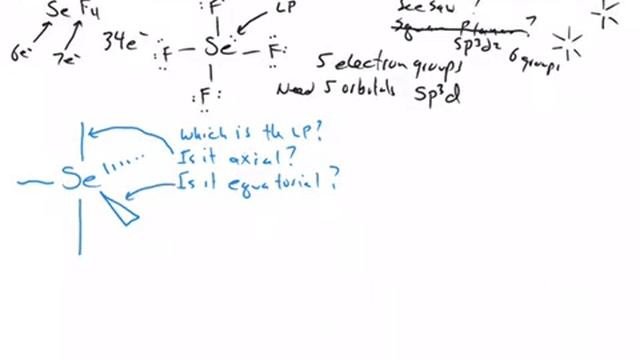 SeF4
6e⁻ 7e⁻
34e⁻
:F:
LP
:F — Se — F:
:F:
See Saw ?
Square Planar ?
sp³d²
6 groups
5 electron groups
Need 5 orbitals sp³d
Which is the LP?
Is it axial?
Is it equatorial?
Se